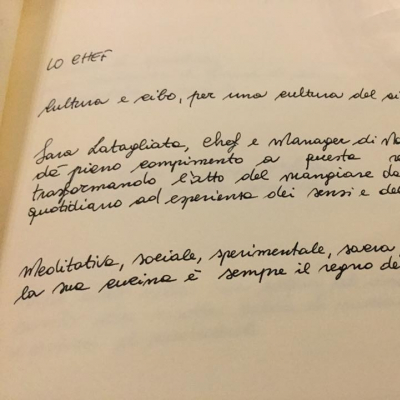 LO CHEF
Cultura e cibo, per una cultura del
Sara Latagliata, Chef e Manager di
dà pieno compimento a questa
trasformando l'atto del mangiare da
quotidiano ad esperienza dei sensi e
Meditativa, sociale, sperimentale, sacra
la sua cucina è sempre il regno